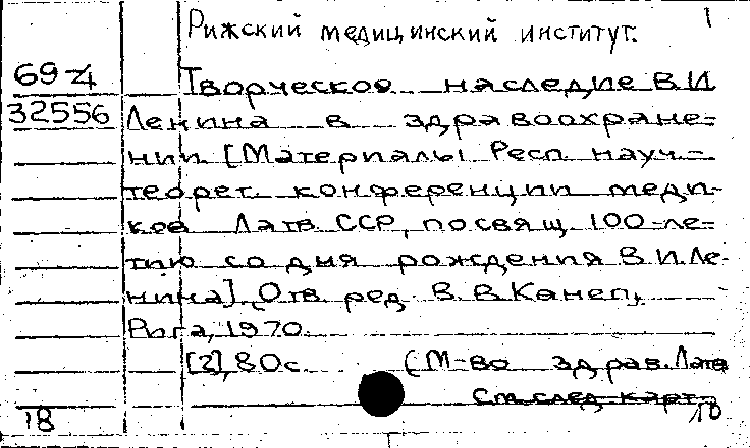 Рижский медицинский институт. 1
69-4 Творческое наследие В.И.
32556 Ленина в здравоохране=
нии. [Материалы Респ. науч.-
теорет. конференции меди-
ков Латв. ССР, посвящ. 100-ле-
тию со дня рождения В.И.Ле-
нина]. Отв. ред. В.В.Канеп,
Рига, 1970.
[2], 80с. (М-во здрав. Латв
См. след. карт.
18 10